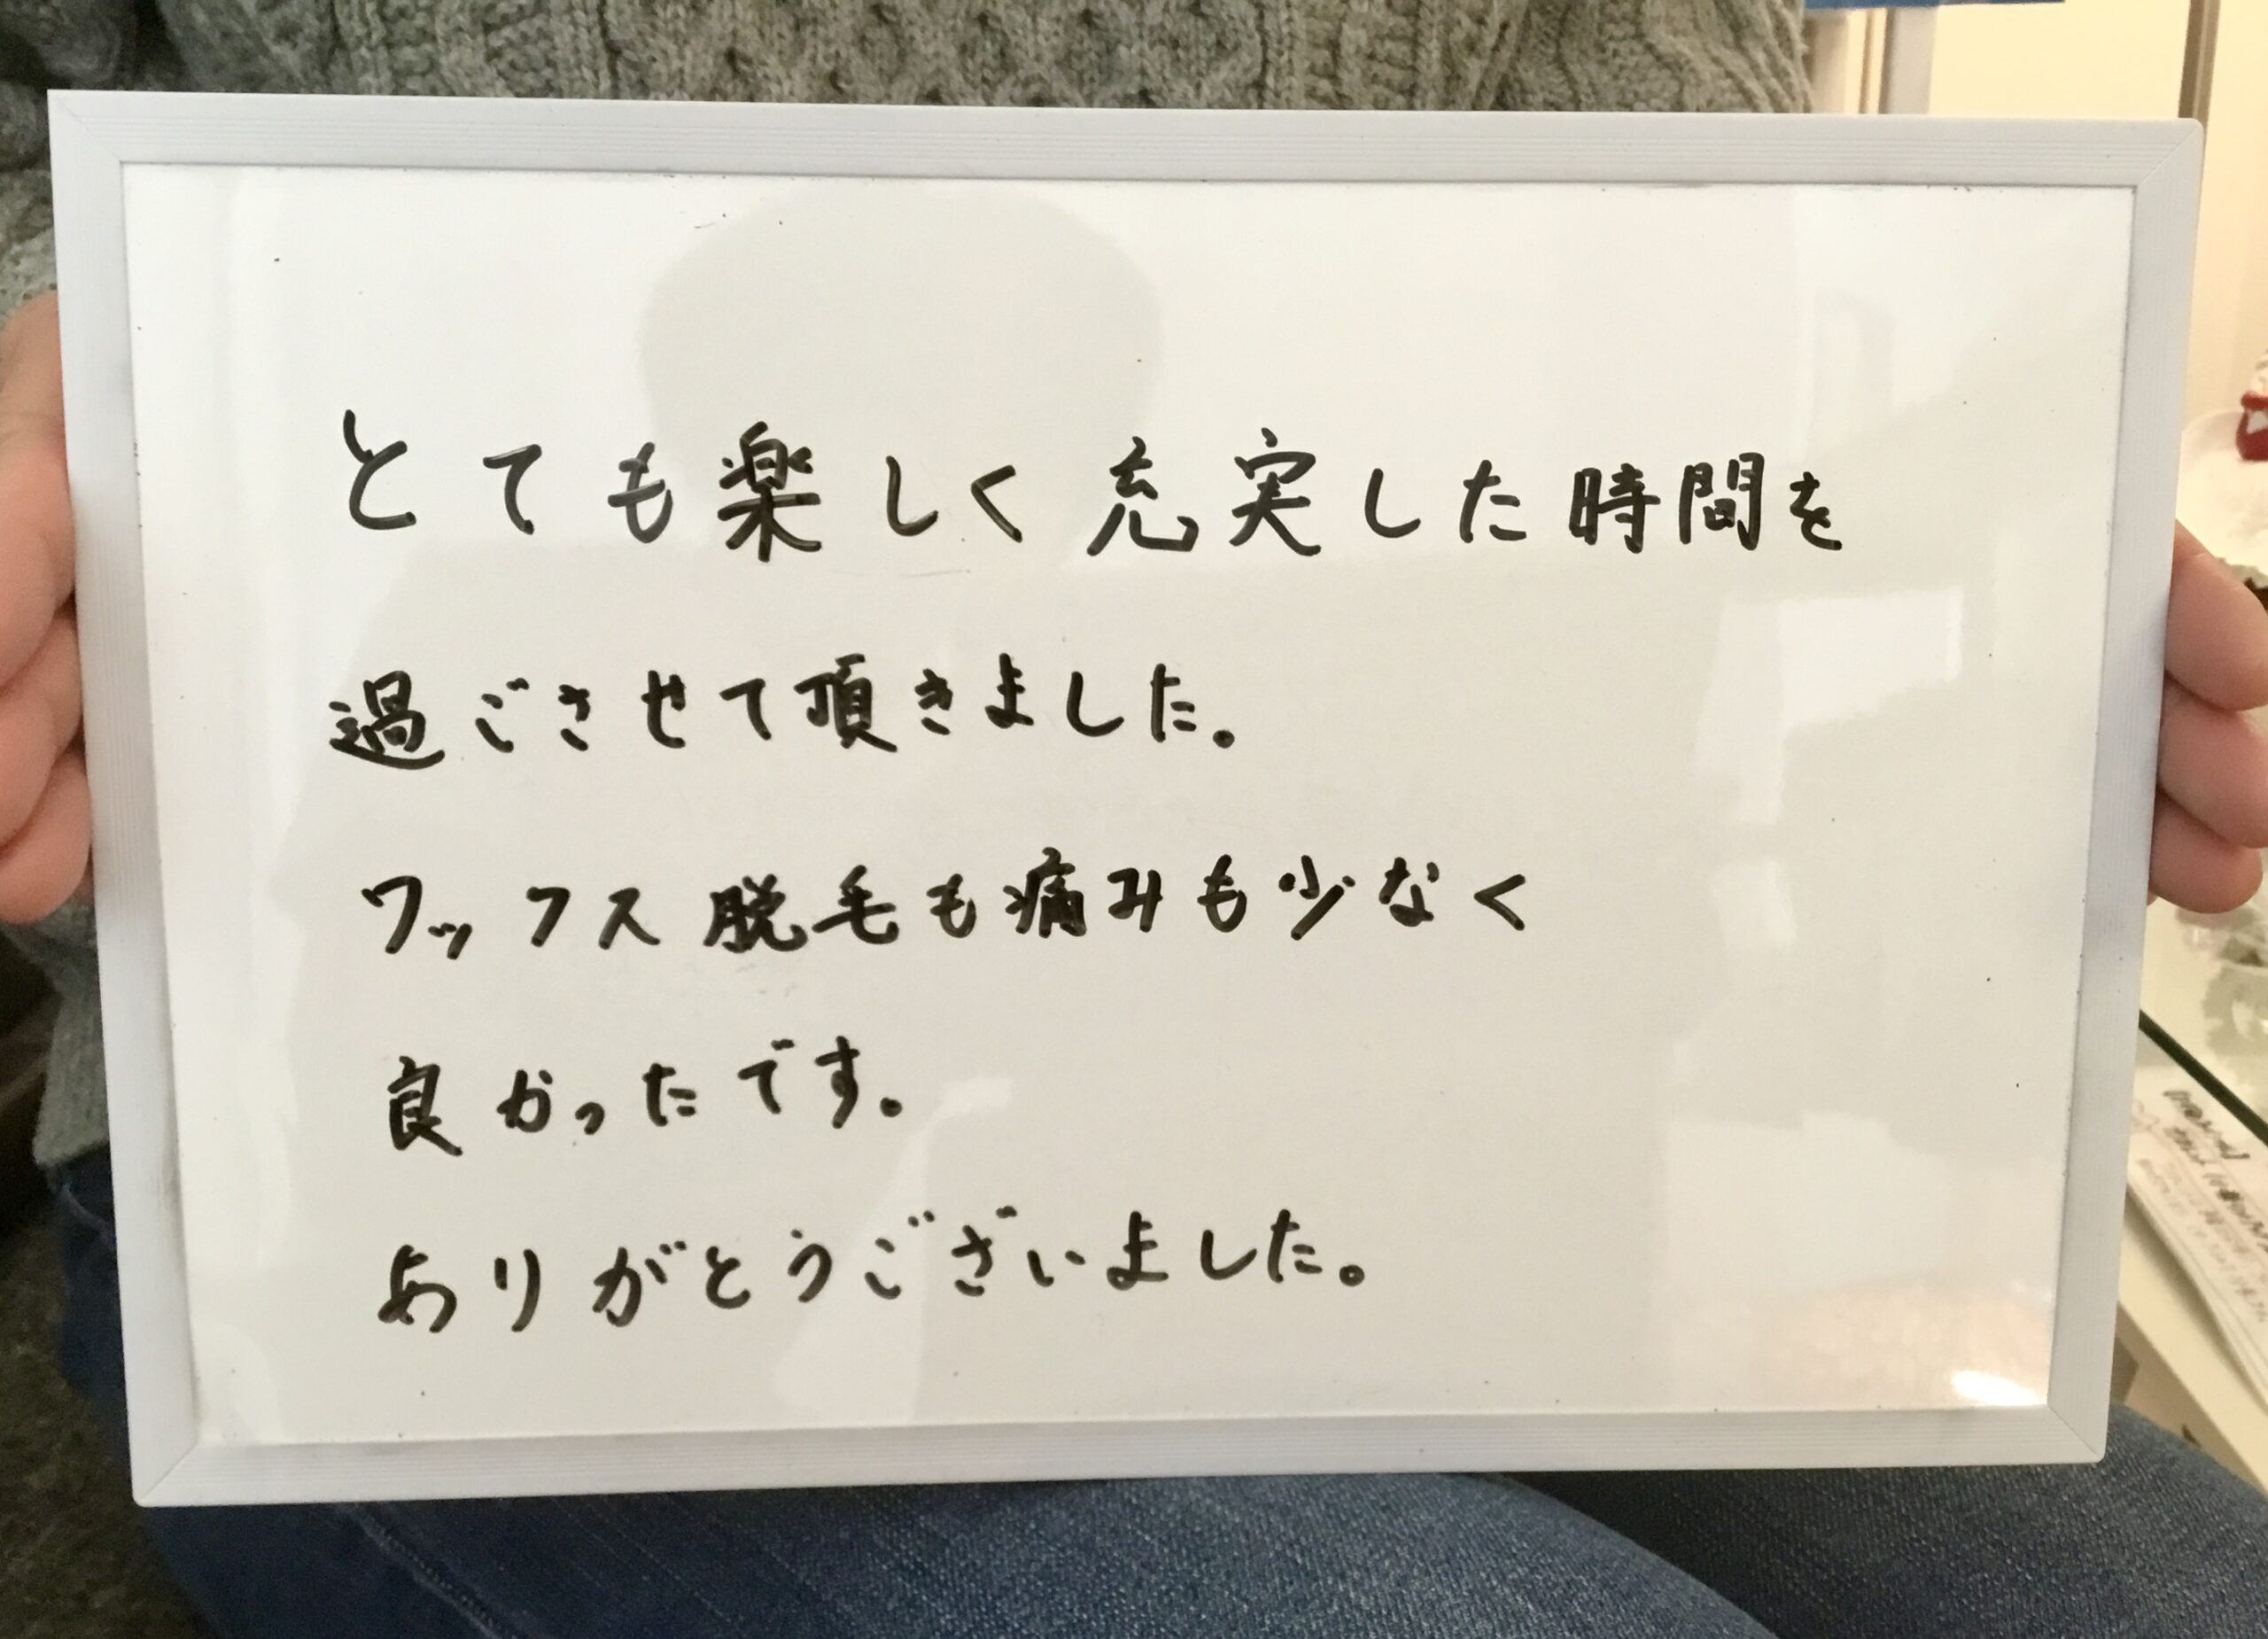 とても楽しく充実した時間を
過ごさせて頂きました。
ワックス脱毛も痛みも少なく
良かったです。
ありがとうございました。